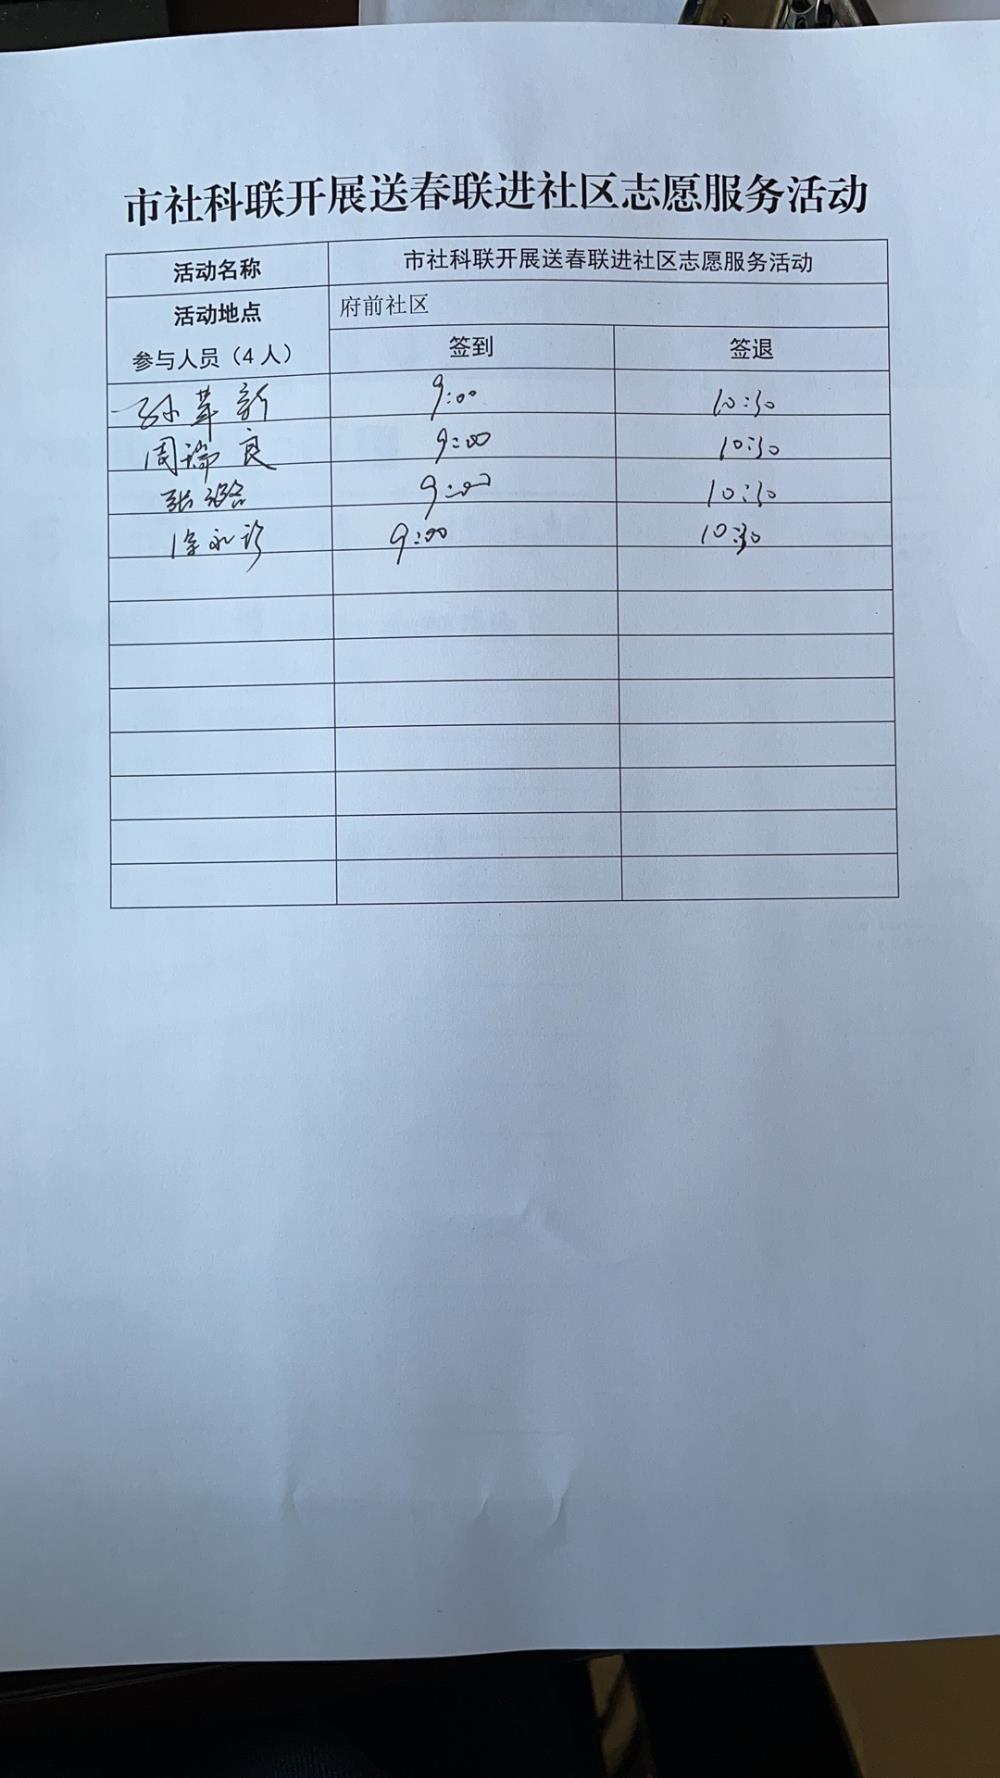 市社科联开展送春联进社区志愿服务活动
活动名称 市社科联开展送春联进社区志愿服务活动
活动地点 府前社区
参与人员（4 人） 签到 签退
孙革新 9:00 10:30
周瑞良 9:00 10:30
张璐 9:00 10:30
徐永珍 9:00 10:30